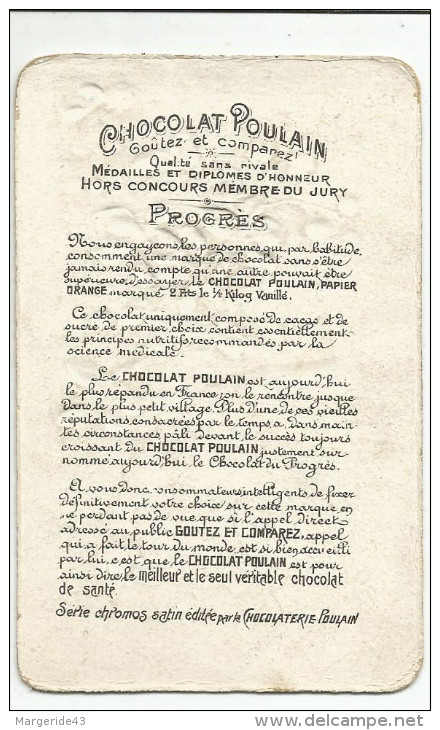 CHOCOLAT POULAIN
Goûtez et comparez!
Qualité sans rivale
MÉDAILLES ET DIPLOMES D'HONNEUR
HORS CONCOURS MEMBRE DU JURY
PROGRÈS
Nous engageons les personnes qui, par habitude,
consomment une marque de chocolat sans s'être
jamais rendu compte qu'une autre pouvait être
supérieure, d'essayer le CHOCOLAT POULAIN, PAPIER
ORANGE marqué 2 Frs le ½ Kilog Vanillé.
Ce chocolat uniquement composé de cacao et de
sucre de premier choix contient essentiellement
les principes nutritifs recommandés par la
science médicale.
Le CHOCOLAT POULAIN est aujourd'hui
le plus répandu en France; on le rencontre jusque
dans le plus petit village. Plus d'une de ces vieilles
réputations, consacrées par le temps a, dans main-
tes circonstances pâli devant le succès toujours
croissant du CHOCOLAT POULAIN justement sur-
nommé aujourd'hui le Chocolat du Progrès.
A vous donc, consommateurs intelligents de fixer
définitivement votre choix sur cette marque en
ne perdant pas de vue que si l'appel direct
adressé au public GOUTEZ ET COMPAREZ, appel
qui a fait le tour du monde est si bien accueilli
par lui, c'est que le CHOCOLAT POULAIN est pour
ainsi dire, le meilleur et le seul véritable chocolat
de santé.
Série chromos satin éditée par la CHOCOLATERIE POULAIN
Margeride43
www.delcampe.net